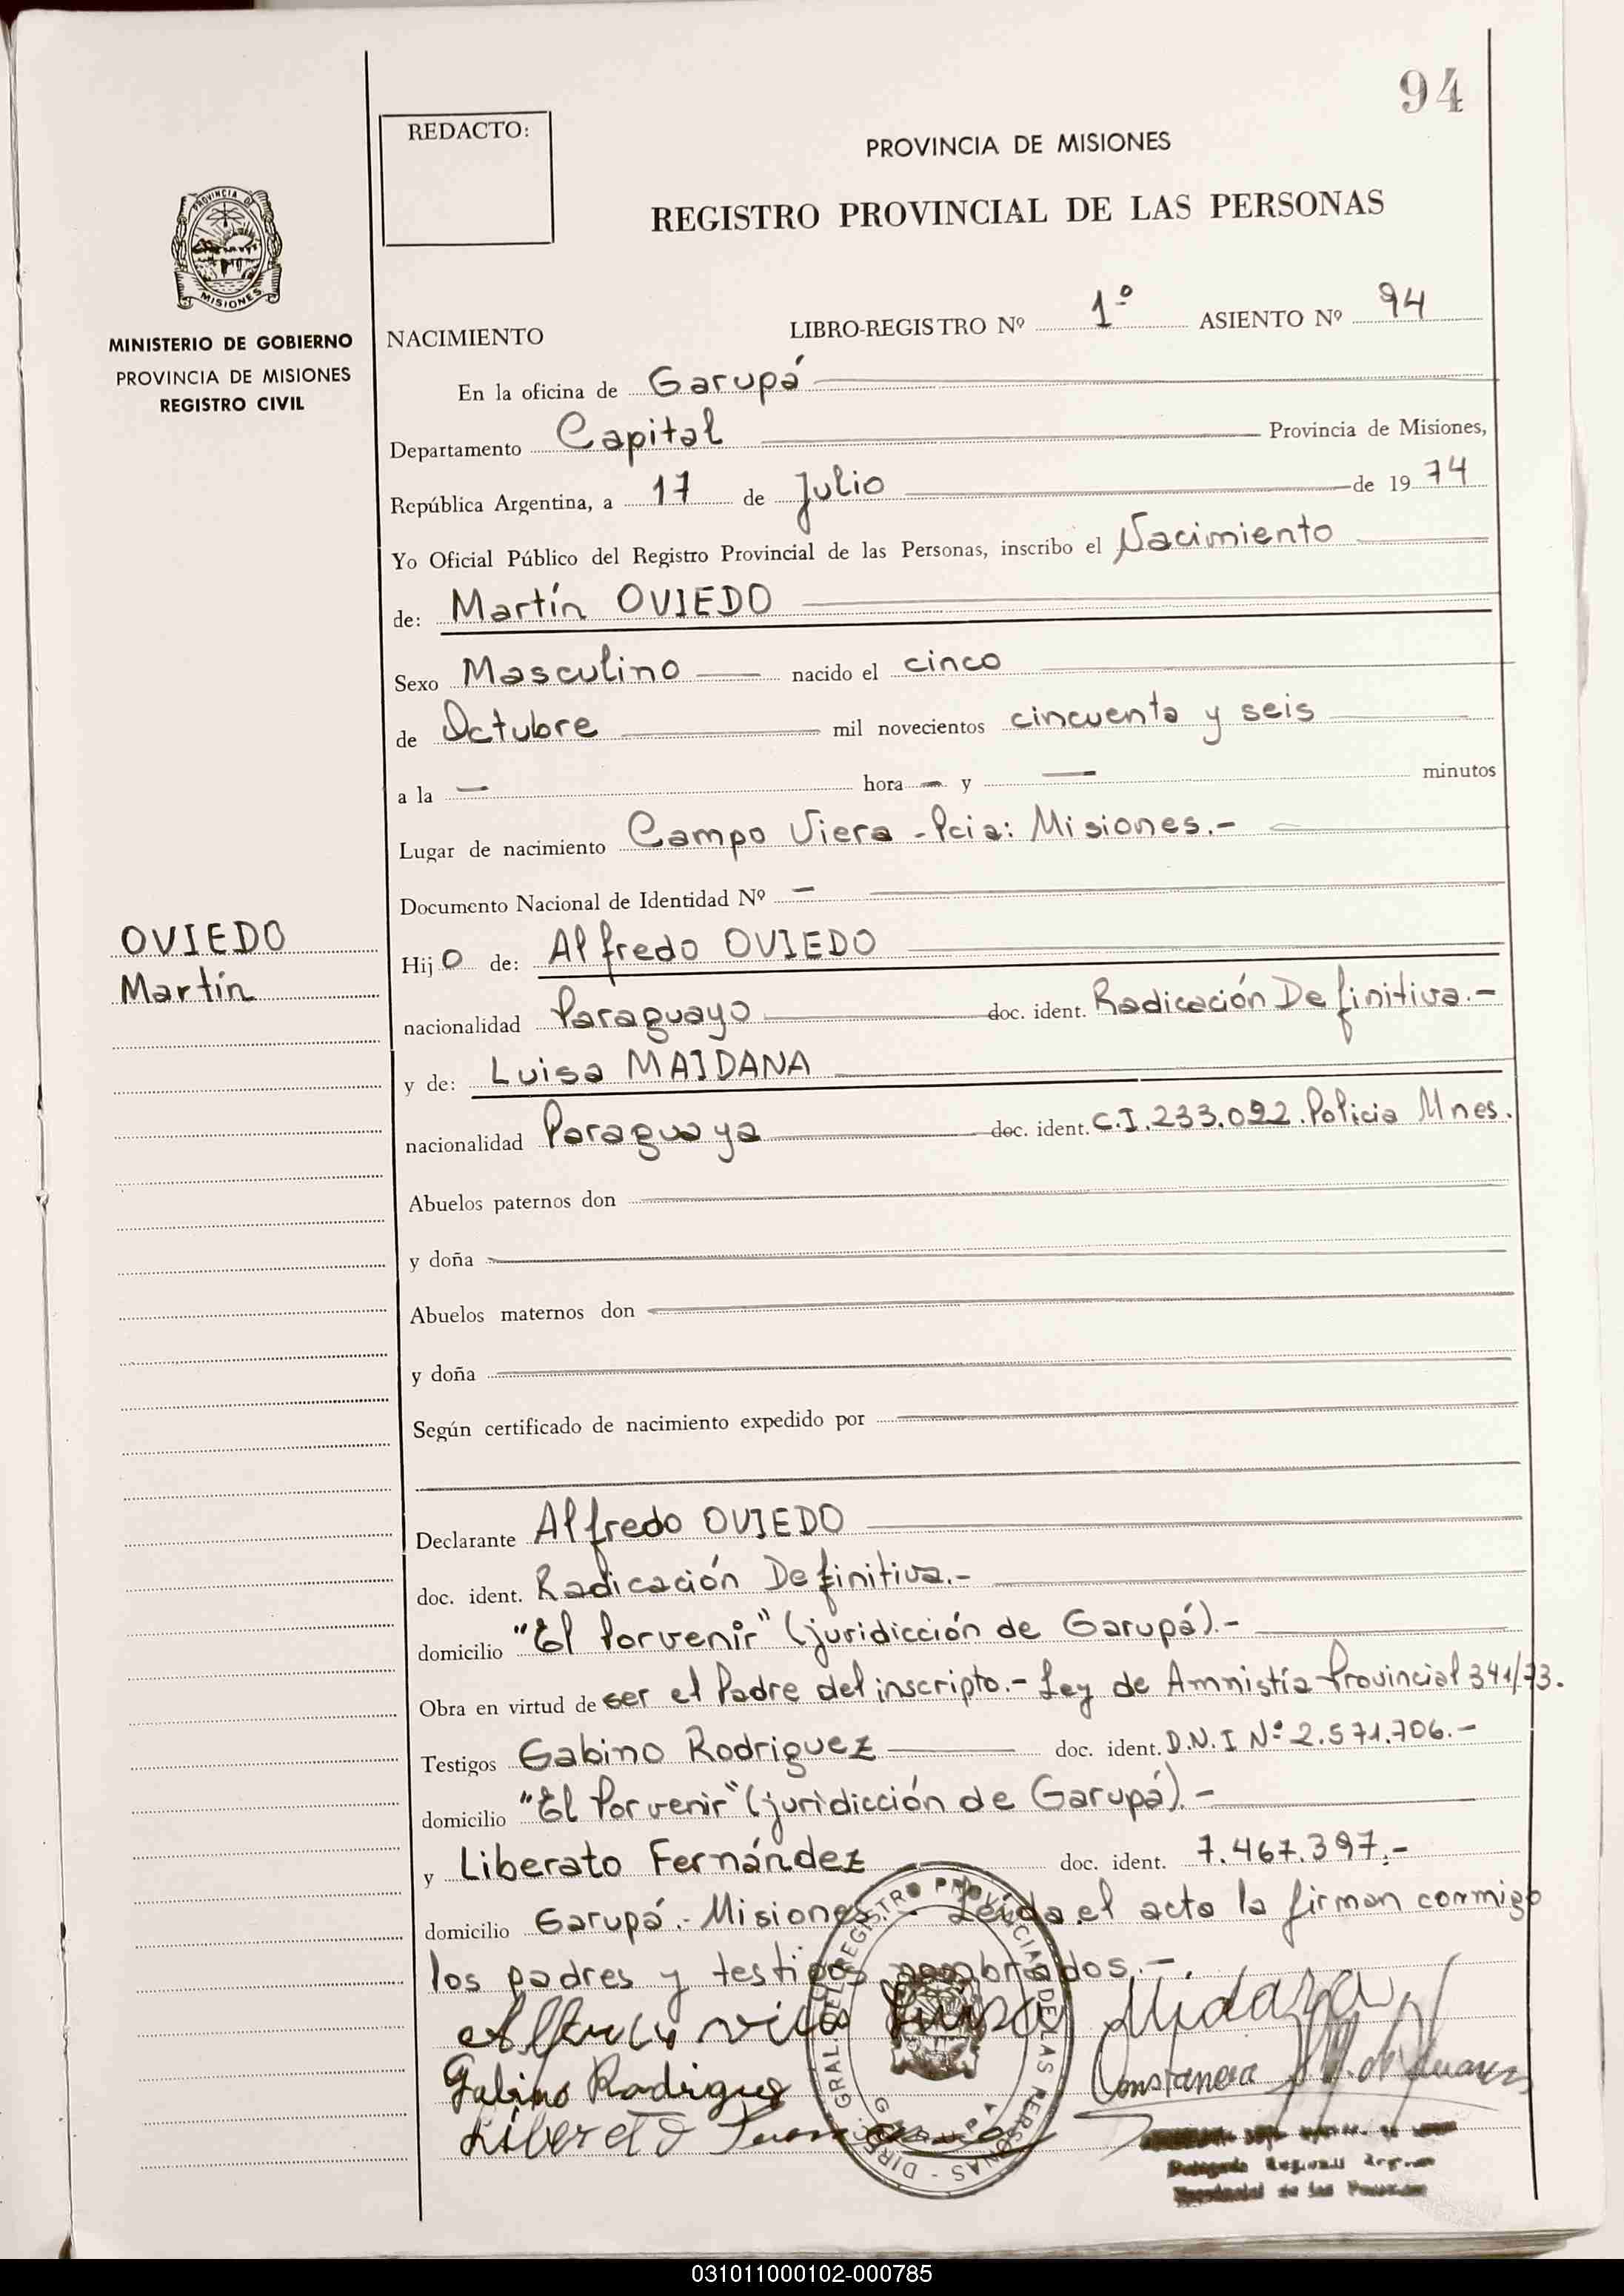 94
REDACTO:
PROVINCIA DE MISIONES
REGISTRO PROVINCIAL DE LAS PERSONAS
PROVINCIA DE
MISIONES
MINISTERIO DE GOBIERNO
PROVINCIA DE MISIONES
REGISTRO CIVIL
NACIMIENTO LIBRO-REGISTRO Nº 1º ASIENTO Nº 94
En la oficina de Garupá
Departamento Capital Provincia de Misiones,
República Argentina, a 17 de Julio de 1974
Yo Oficial Público del Registro Provincial de las Personas, inscribo el Nacimiento
de: Martín OVIEDO
Sexo Masculino nacido el cinco
de Octubre mil novecientos cincuenta y seis
a la — hora — y — minutos
Lugar de nacimiento Campo Viera - Pcia: Misiones.-
Documento Nacional de Identidad Nº —
OVIEDO
Martín
Hijo de: Alfredo OVIEDO
nacionalidad Paraguayo doc. ident. Radicación Definitiva.-
y de: Luisa MAIDANA
nacionalidad Paraguaya doc. ident. C.I. 233.092. Policia Mnes.
Abuelos paternos don
y doña
Abuelos maternos don
y doña
Según certificado de nacimiento expedido por
Declarante Alfredo OVIEDO
doc. ident. Radicación Definitiva.-
domicilio "El Porvenir" (juridicción de Garupá).-
Obra en virtud de ser el Padre del inscripto.- Ley de Amnistía Provincial 341/73.
Testigos Gabino Rodriguez doc. ident. D.N.I Nº 2.571.706.-
domicilio "El Porvenir" (juridicción de Garupá).-
y Liberato Fernández doc. ident. 7.467.397.-
domicilio Garupá.- Misiones.- Leída el acta la firman conmigo
los padres y testigos nombrados.-
Luisa Midana
Gabino Rodrigues
Constancia de
Liberato
DIRECC. GRAL. DEL REGISTRO PROVINCIAL DE LAS PERSONAS
GARUPA
Provincial de las Personas
031011000102-000785